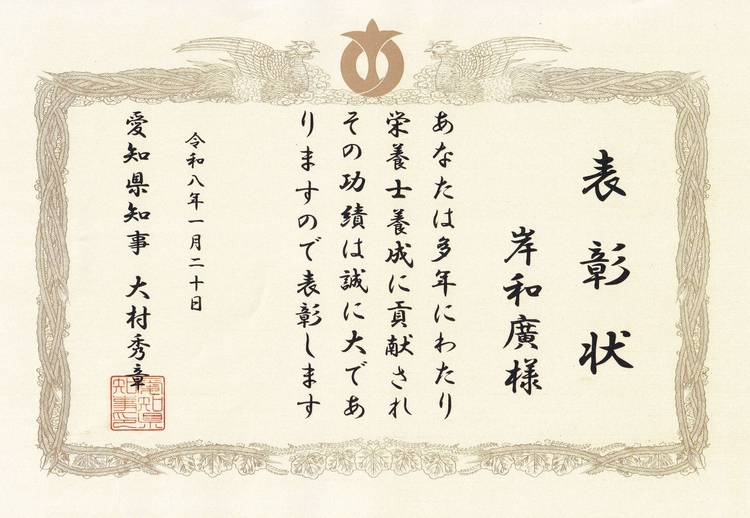 表彰状
岸和廣様
あなたは多年にわたり
栄養士養成に貢献され
その功績は誠に大であ
りますので表彰します
令和八年一月二十日
愛知県知事 大村秀章
愛知県知事印